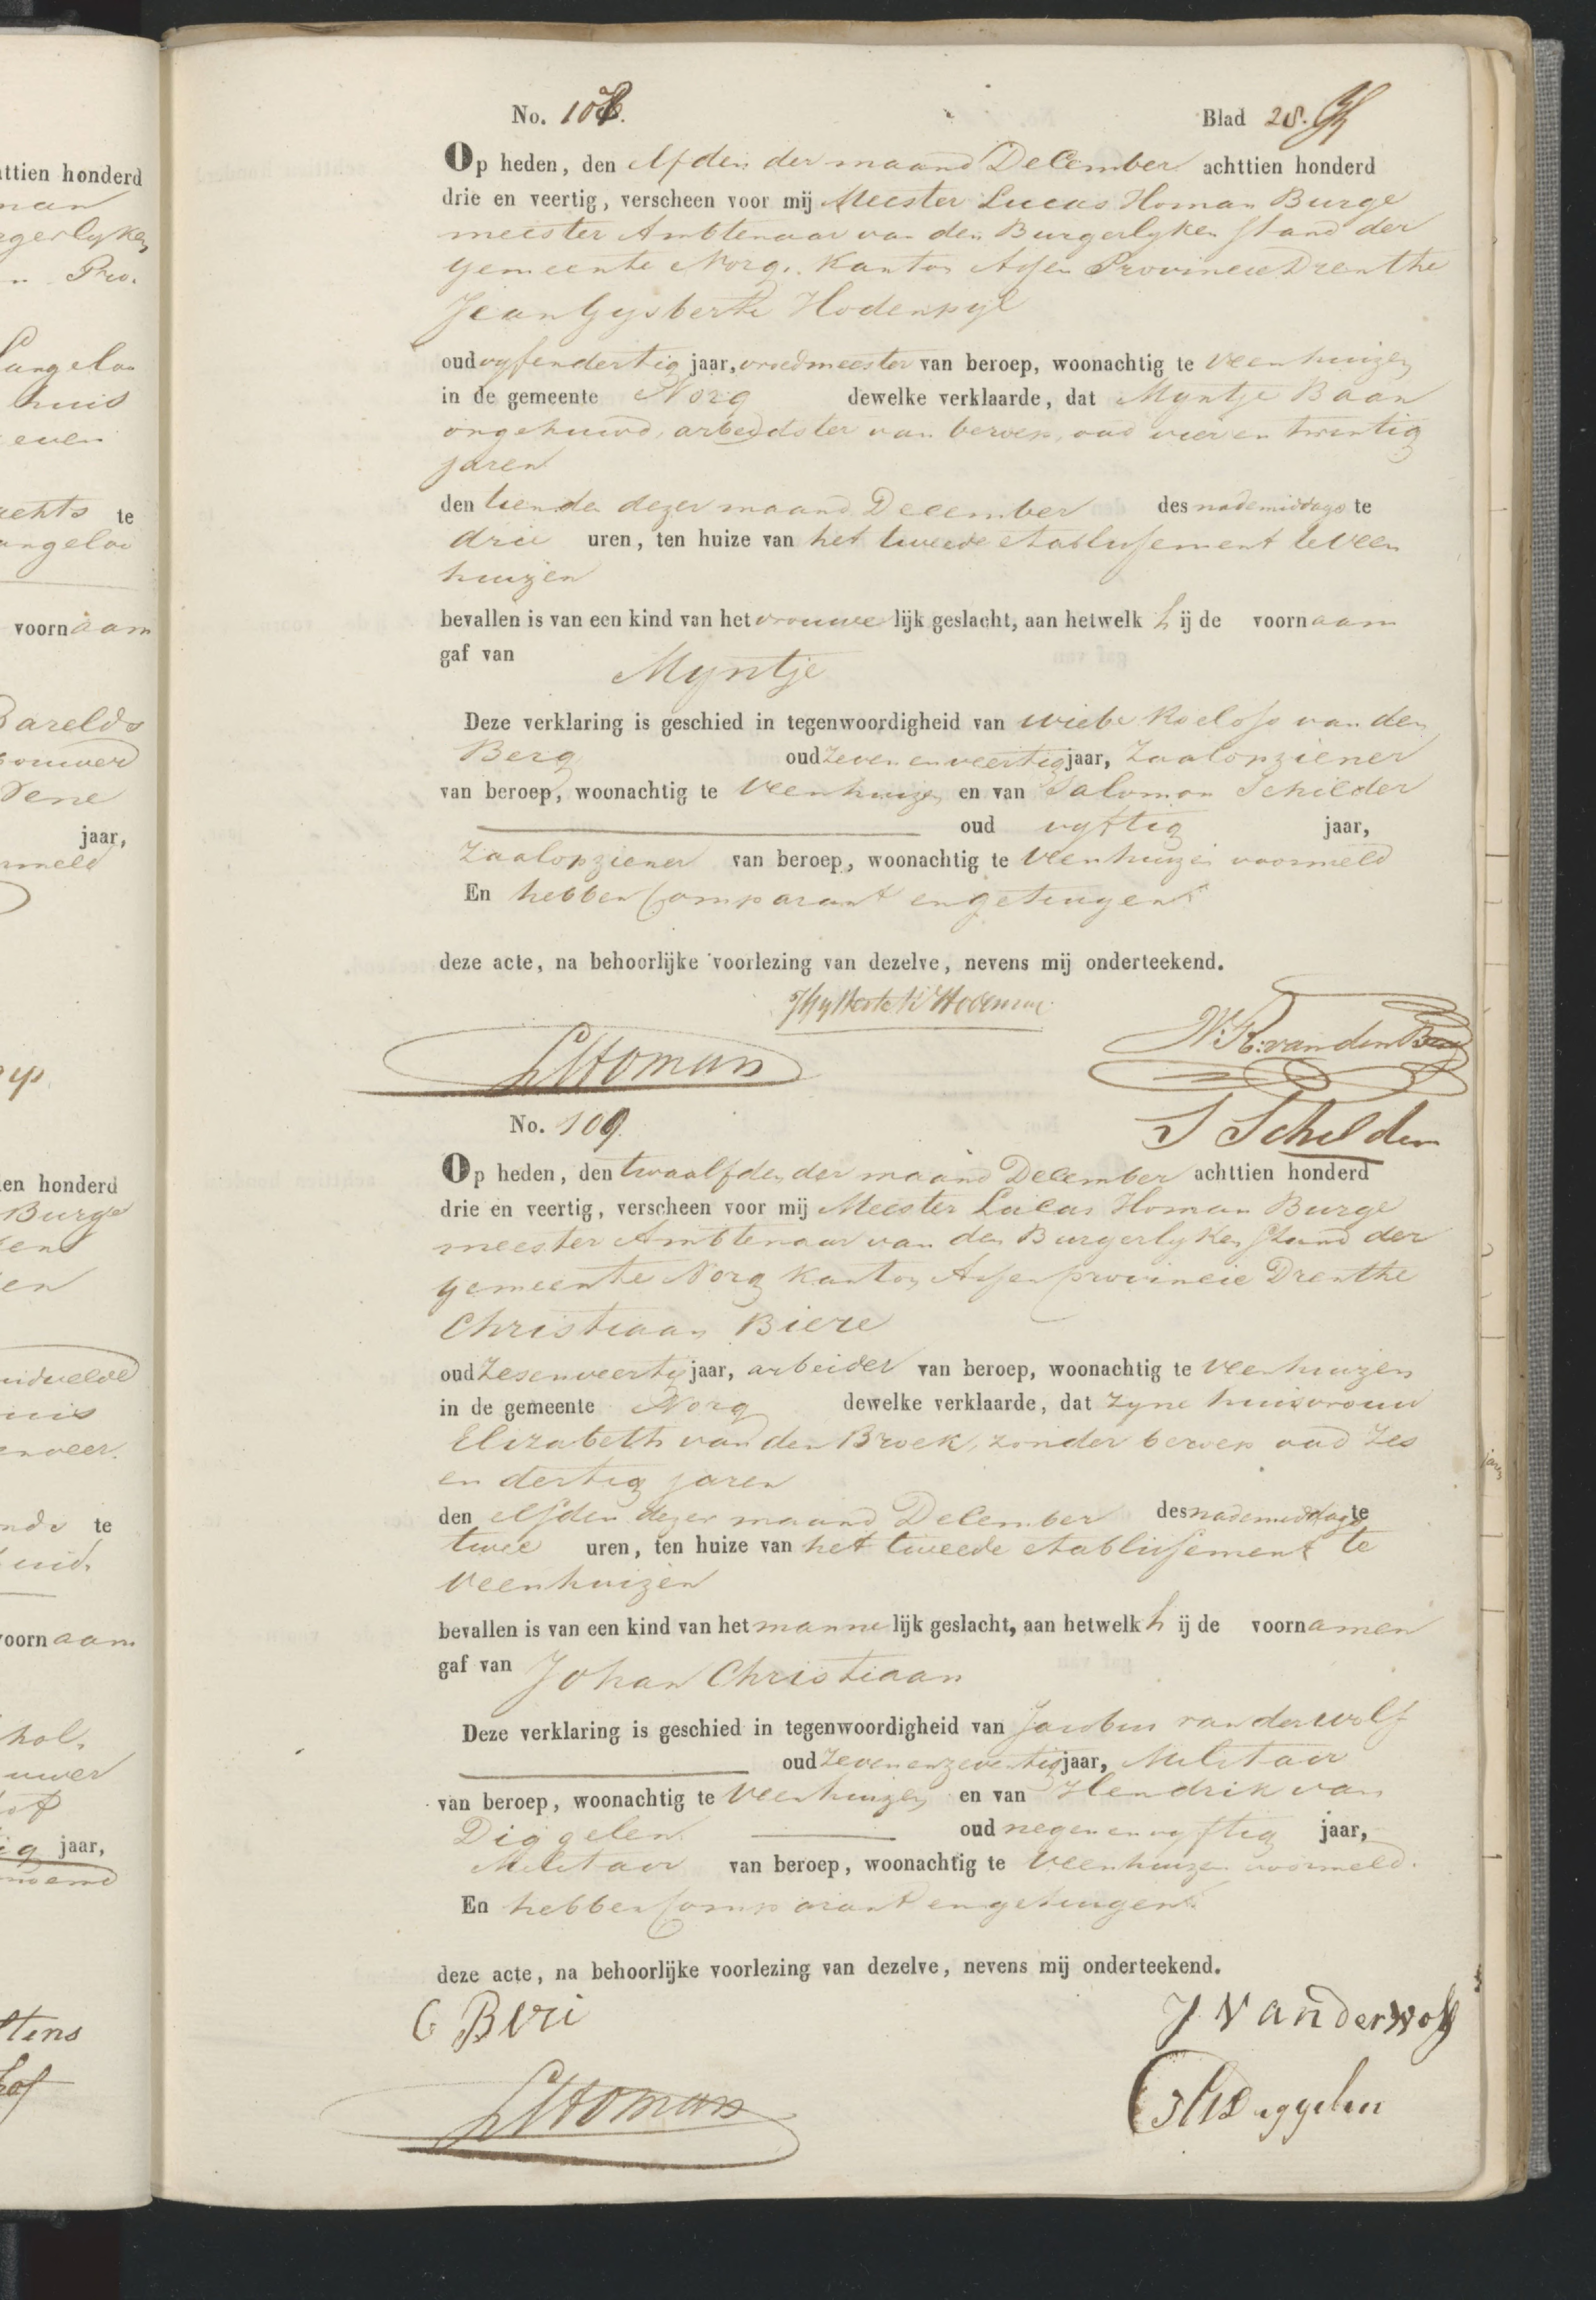 No. 108. Blad 28.
Op heden, den elfden der maand December achttien honderd
drie en veertig, verscheen voor mij Meester Lucas Homan Burge
meester Ambtenaar van den Burgerlyken Stand der
gemeente Norg, Kanton Assen Provincie Drenthe
Jean Gysberti Hodenpyl
oud vyfendertig jaar, vroedmeester van beroep, woonachtig te Veenhuizen
in de gemeente Norg dewelke verklaarde, dat Myntje Baan
ongehuwd, arbeidster van beroep, oud vier en twintig
jaren
den tienden dezer maand December des nademiddags te
drie uren, ten huize van het tweede etablissement te Veen
huizen
bevallen is van een kind van het vrouwelijk geslacht, aan hetwelk hij de voornaam
gaf van Myntje
Deze verklaring is geschied in tegenwoordigheid van Wiebe Roelofs van den
Berg oud Zeven en veertig jaar, Zaalopziener
van beroep, woonachtig te Veenhuizen en van Salomon Schilder
oud vyftig jaar,
Zaalopziener van beroep, woonachtig te Veenhuizen voormeld
En hebben Comparant en getuigen
deze acte, na behoorlijke voorlezing van dezelve, nevens mij onderteekend.
W: R: van den Berg
LHoman
S Schilder
No. 109.
Op heden, den twaalfden der maand December achttien honderd
drie en veertig, verscheen voor mij Meester Lucas Homan Burge
meester Ambtenaar van den Burgerlyken Stand der
gemeente Norg Kanton Assen provincie Drenthe
Christiaan Biere
oud Zesenveertig jaar, arbeider van beroep, woonachtig te Veenhuizen
in de gemeente Norg dewelke verklaarde, dat zyne huisvrouw
Elizabeth van den Broek, zonder beroep oud Zes
en dertig jaren
den elfden dezer maand December des nademiddags te
twee uren, ten huize van het tweede etablissement te
Veenhuizen
bevallen is van een kind van het mannelijk geslacht, aan hetwelk hij de voornamen
gaf van Johan Christiaan
Deze verklaring is geschied in tegenwoordigheid van Jacobus van der Wolf
oud Zeven en zeventig jaar, Militair
van beroep, woonachtig te Veenhuizen en van Hendrik van
Diggelen oud negen en vyftig jaar,
Militair van beroep, woonachtig te Veenhuizen voormeld.
En hebben Comparant en getuigen
deze acte, na behoorlijke voorlezing van dezelve, nevens mij onderteekend.
C Biri
J Vanderwolf
LHoman